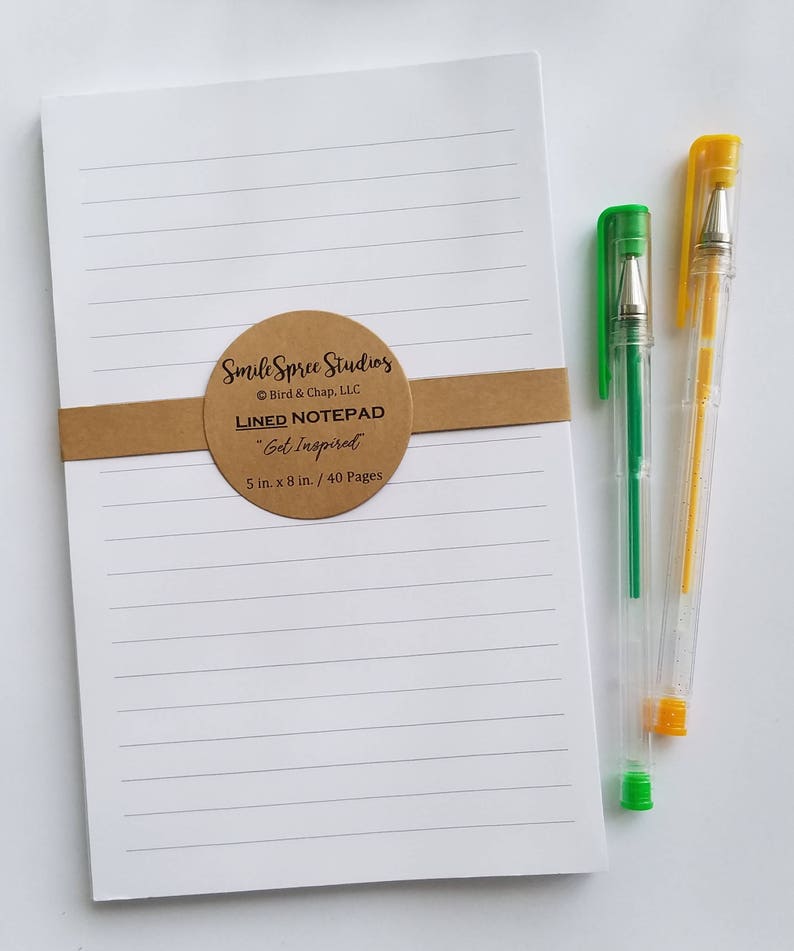 SmileSpree Studios
© Bird & Chap, LLC
LINED NOTEPAD
"Get Inspired"
5 in. x 8 in. / 40 Pages